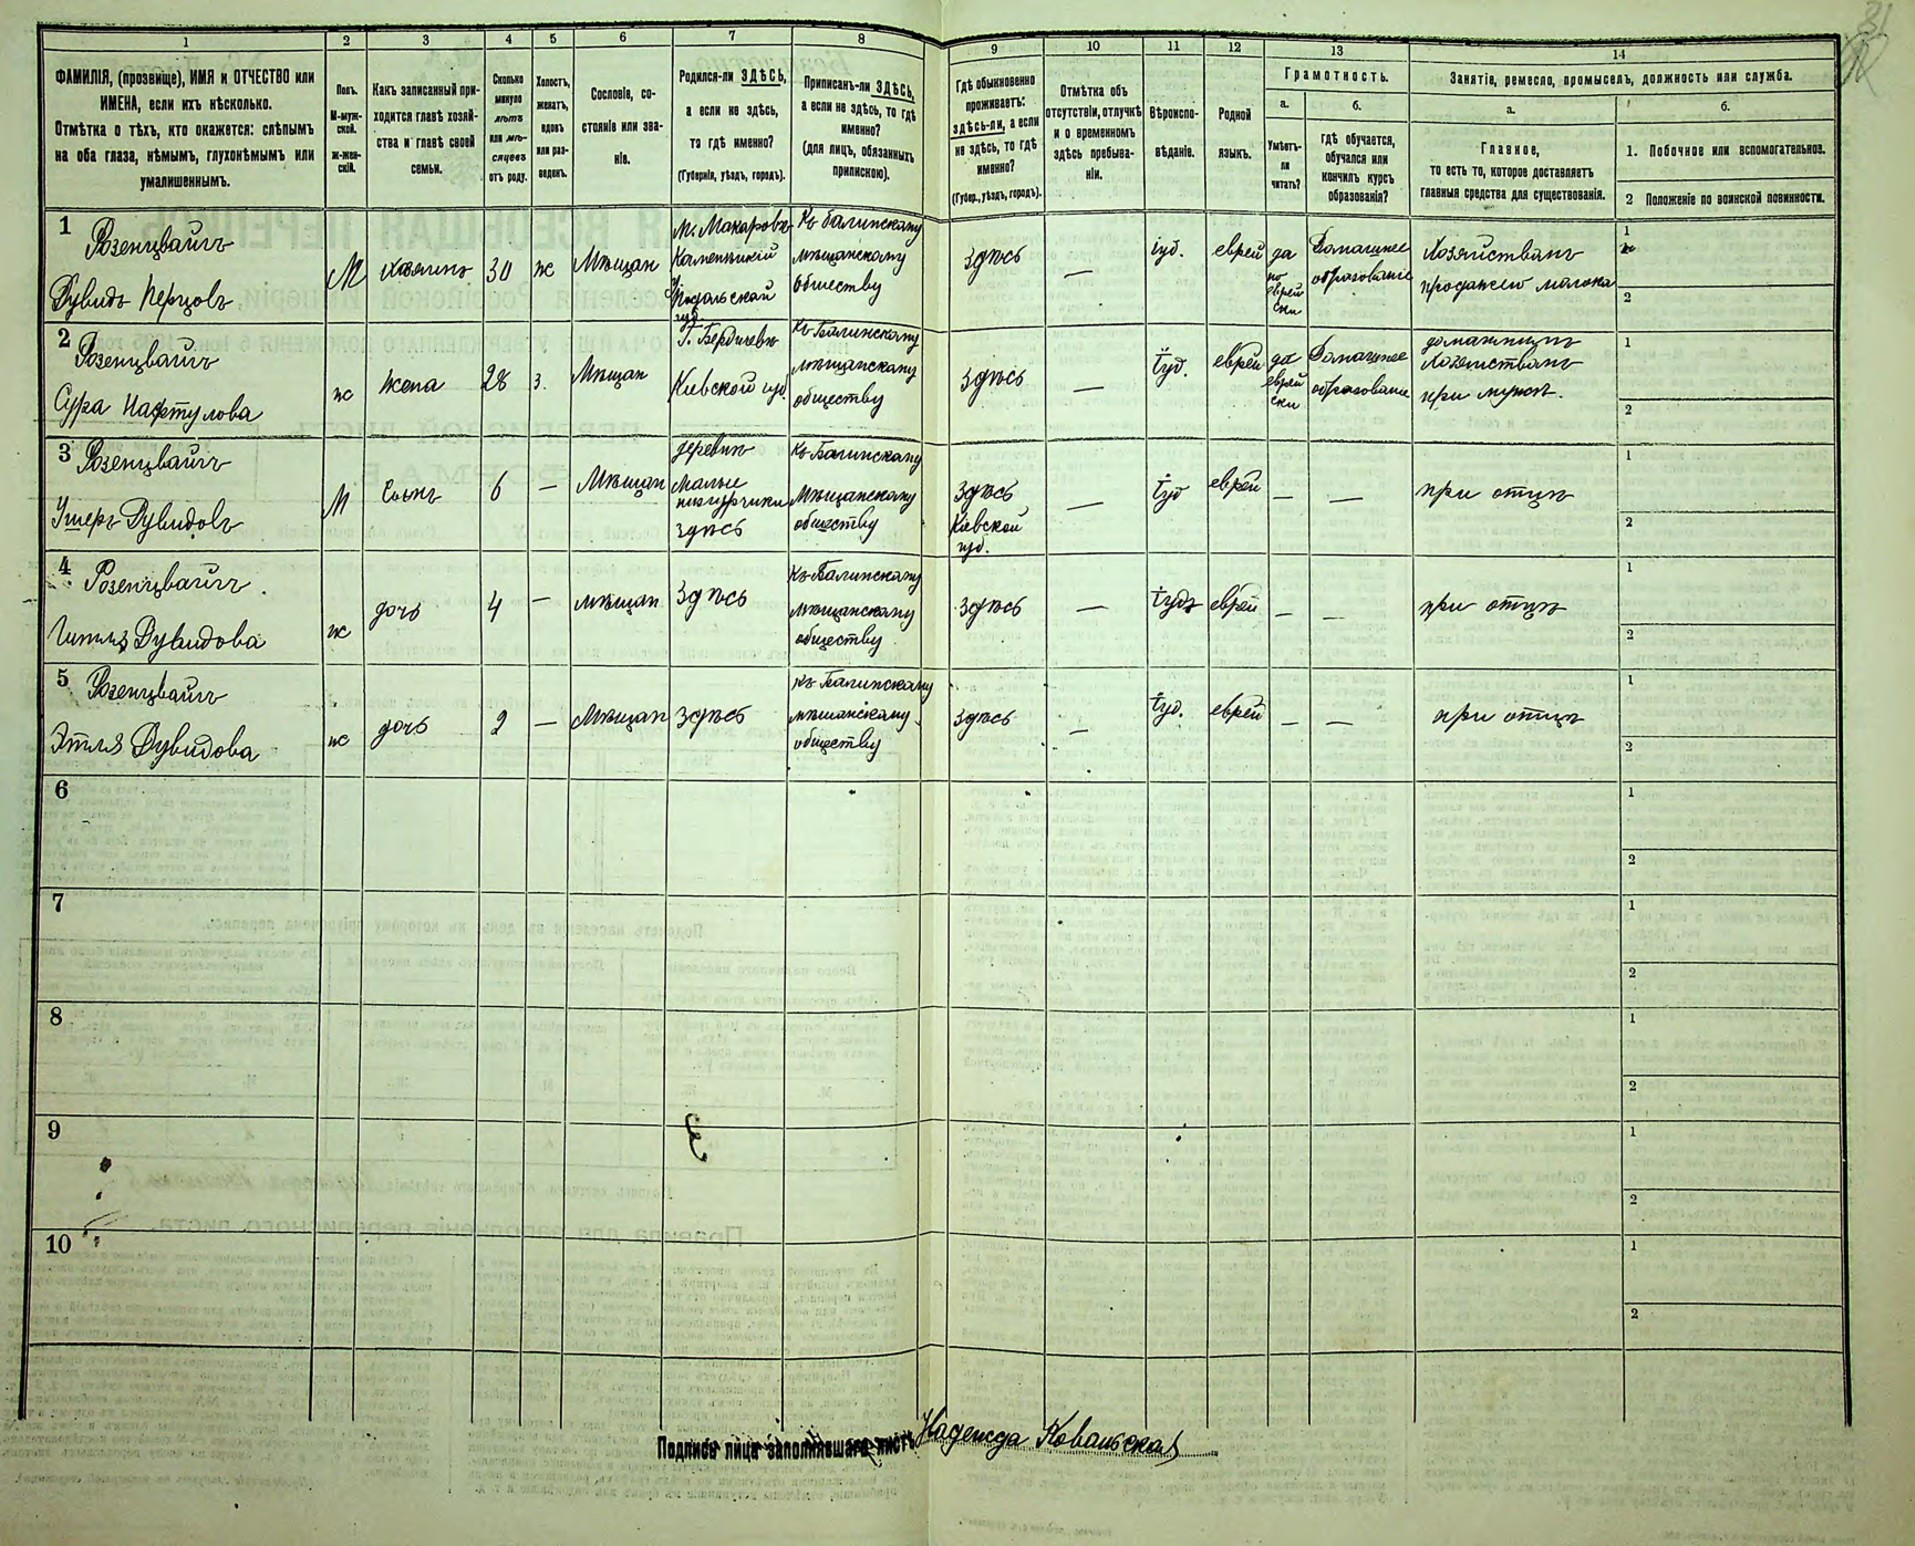 31
1 2 3 4 5 6 7 8 9 10 11 12 13 14
ФАМИЛІЯ, (прозвище), ИМЯ и ОТЧЕСТВО или
ИМЕНА, если ихъ нѣсколько.
Отмѣтка о тѣхъ, кто окажется: слѣпымъ
на оба глаза, нѣмымъ, глухонѣмымъ или
умалишеннымъ.
Полъ.
М-муж-
ской.
Ж-жен-
скій.
Какъ записанный при-
ходится главѣ хозяй-
ства и главѣ своей
семьи.
Сколько
минуло
лѣтъ
или мѣ-
сяцевъ
отъ роду.
Холостъ,
женатъ,
вдовъ
или раз-
веденъ.
Сословіе, со-
стояніе или зва-
ніе.
Родился-ли ЗДѢСЬ,
а если не здѣсь,
то гдѣ именно?
(Губернія, уѣздъ, городъ).
Приписанъ-ли ЗДѢСЬ,
а если не здѣсь, то гдѣ
именно?
(для лицъ, обязанныхъ
припискою).
Гдѣ обыкновенно
проживаетъ:
здѣсь-ли, а если
не здѣсь, то гдѣ
именно?
(Губер., уѣздъ, городъ).
Отмѣтка объ
отсутствіи, отлучкѣ
и о временномъ
здѣсь пребыва-
ніи.
Вѣроиспо-
вѣданіе.
Родной
языкъ.
Грамотность.
а.
Умѣетъ-
ли
читать?
б.
Гдѣ обучается,
обучался или
кончилъ курсъ
образованія?
Занятіе, ремесло, промыселъ, должность или служба.
а.
Главное,
то есть то, которое доставляетъ
главныя средства для существованія.
б.
1. Побочное или вспомогательное.
2 Положеніе по воинской повинности.
1
Розенцвайгъ
Дувидъ Перцовъ
М
хозяинъ
30
ж
Мѣщан
м. Макаровъ
Каменецкій
Подольской
губ.
Къ Балинскому
мѣщанскому
обществу
Здѣсь
—
іуд.
еврей
да
по
еврей
ски
Домашнее
образованіе
Хозяйствамъ
продажею молока
1
2
2
Розенцвайгъ
Сура Нафтулова
ж
жена
28
з.
Мѣщан
Г. Бердичевъ
Кіевской губ.
Къ Балинскому
мѣщанскому
обществу
Здѣсь
—
іуд.
еврей
да
еврей
ски
Домашнее
образование
домашнимъ
хозяйствамъ
при мужѣ.
1
2
3
Розенцвайгъ
Ушеръ Дувидовъ
М
Сынъ
6
—
Мѣщан
деревнѣ
Малые
Здѣсь
къ Балинскому
Мѣщанскому
обществу
Здѣсь
Кіевской
губ.
—
іуд
еврей
—
—
при отцѣ
1
2
4
Розенцвайгъ
Дувидова
ж
дочь
4
—
мѣщан
Здѣсь
къ Балинскому
мѣщанскому
обществу
Здѣсь
—
іудъ
еврей
—
—
при отцѣ
1
2
5
Розенцвайгъ
Этля Дувидова
ж
дочь
2
—
Мѣщан
Здѣсь
къ Балинскому
мѣщанскому
обществу
Здѣсь
—
іуд.
еврей
—
—
при отцѣ
1
2
6
1
2
7
1
2
8
1
2
9
1
2
10
1
2
Подпись лица заполнившаго листъ Надежда Ковальская